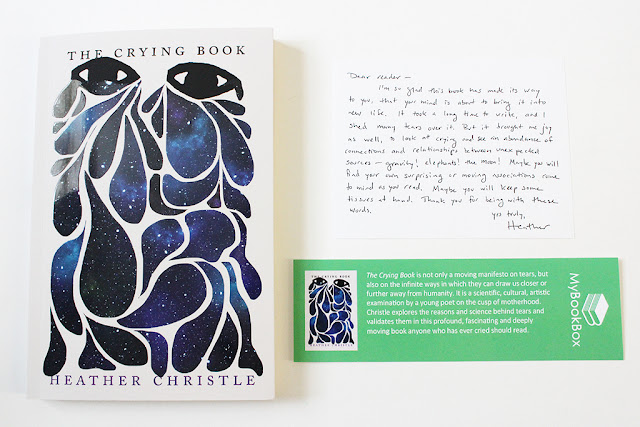 THE CRYING BOOK
HEATHER CHRISTLE
Dear reader —
I'm so glad this book has made its way
to you, that your mind is about to bring it into
new life. It took a long time to write, and I
shed many tears over it. But it brought me joy
as well, to look at crying and see an abundance of
connections and relationships between unexpected
sources — gravity! elephants! the moon! Maybe you will
find your own surprising or moving associations come
to mind as you read. Maybe you will keep some
tissues at hand. Thank you for being with these
words.
yrs truly,
Heather
THE CRYING BOOK
HEATHER CHRISTLE
The Crying Book is not only a moving manifesto on tears, but
also on the infinite ways in which they can draw us closer or
further away from humanity. It is a scientific, cultural, artistic
examination by a young poet on the cusp of motherhood.
Christle explores the reasons and science behind tears and
validates them in this profound, fascinating and deeply
moving book anyone who has ever cried should read.
MyBookBox